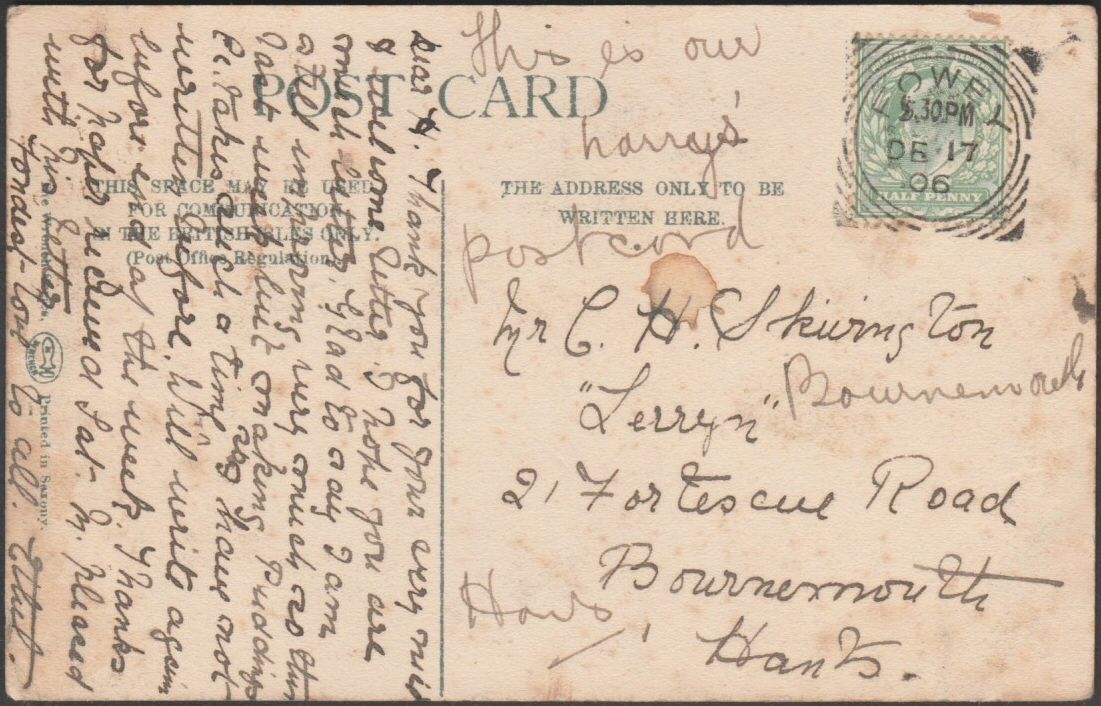 POST CARD
THIS SPACE MAY BE USED
FOR COMMUNICATION
IN THE BRITISH ISLES ONLY.
(Post Office Regulation).
THE ADDRESS ONLY TO BE
WRITTEN HERE.
This is our
harrys'
postcard
FOWEY
5.30PM
DE 17
06
HALF PENNY
Mr C. H. Skivington
"Lerryn"
Bournemouth
21 Fortescue Road
Bournemouth
Hants.
Hants,
Dear H. Thank you for your very nice
& welcome letter. I hope you are
much better. Glad to say I am
still improving very much as this
have been but making Puddings
& takes such a time as have not
written before. Will write again
before end of the week. Thanks
for paper received Sat. M. pleased
with his letter
Fondest love to all. Ethel.
The Wrench
Printed in Saxony.